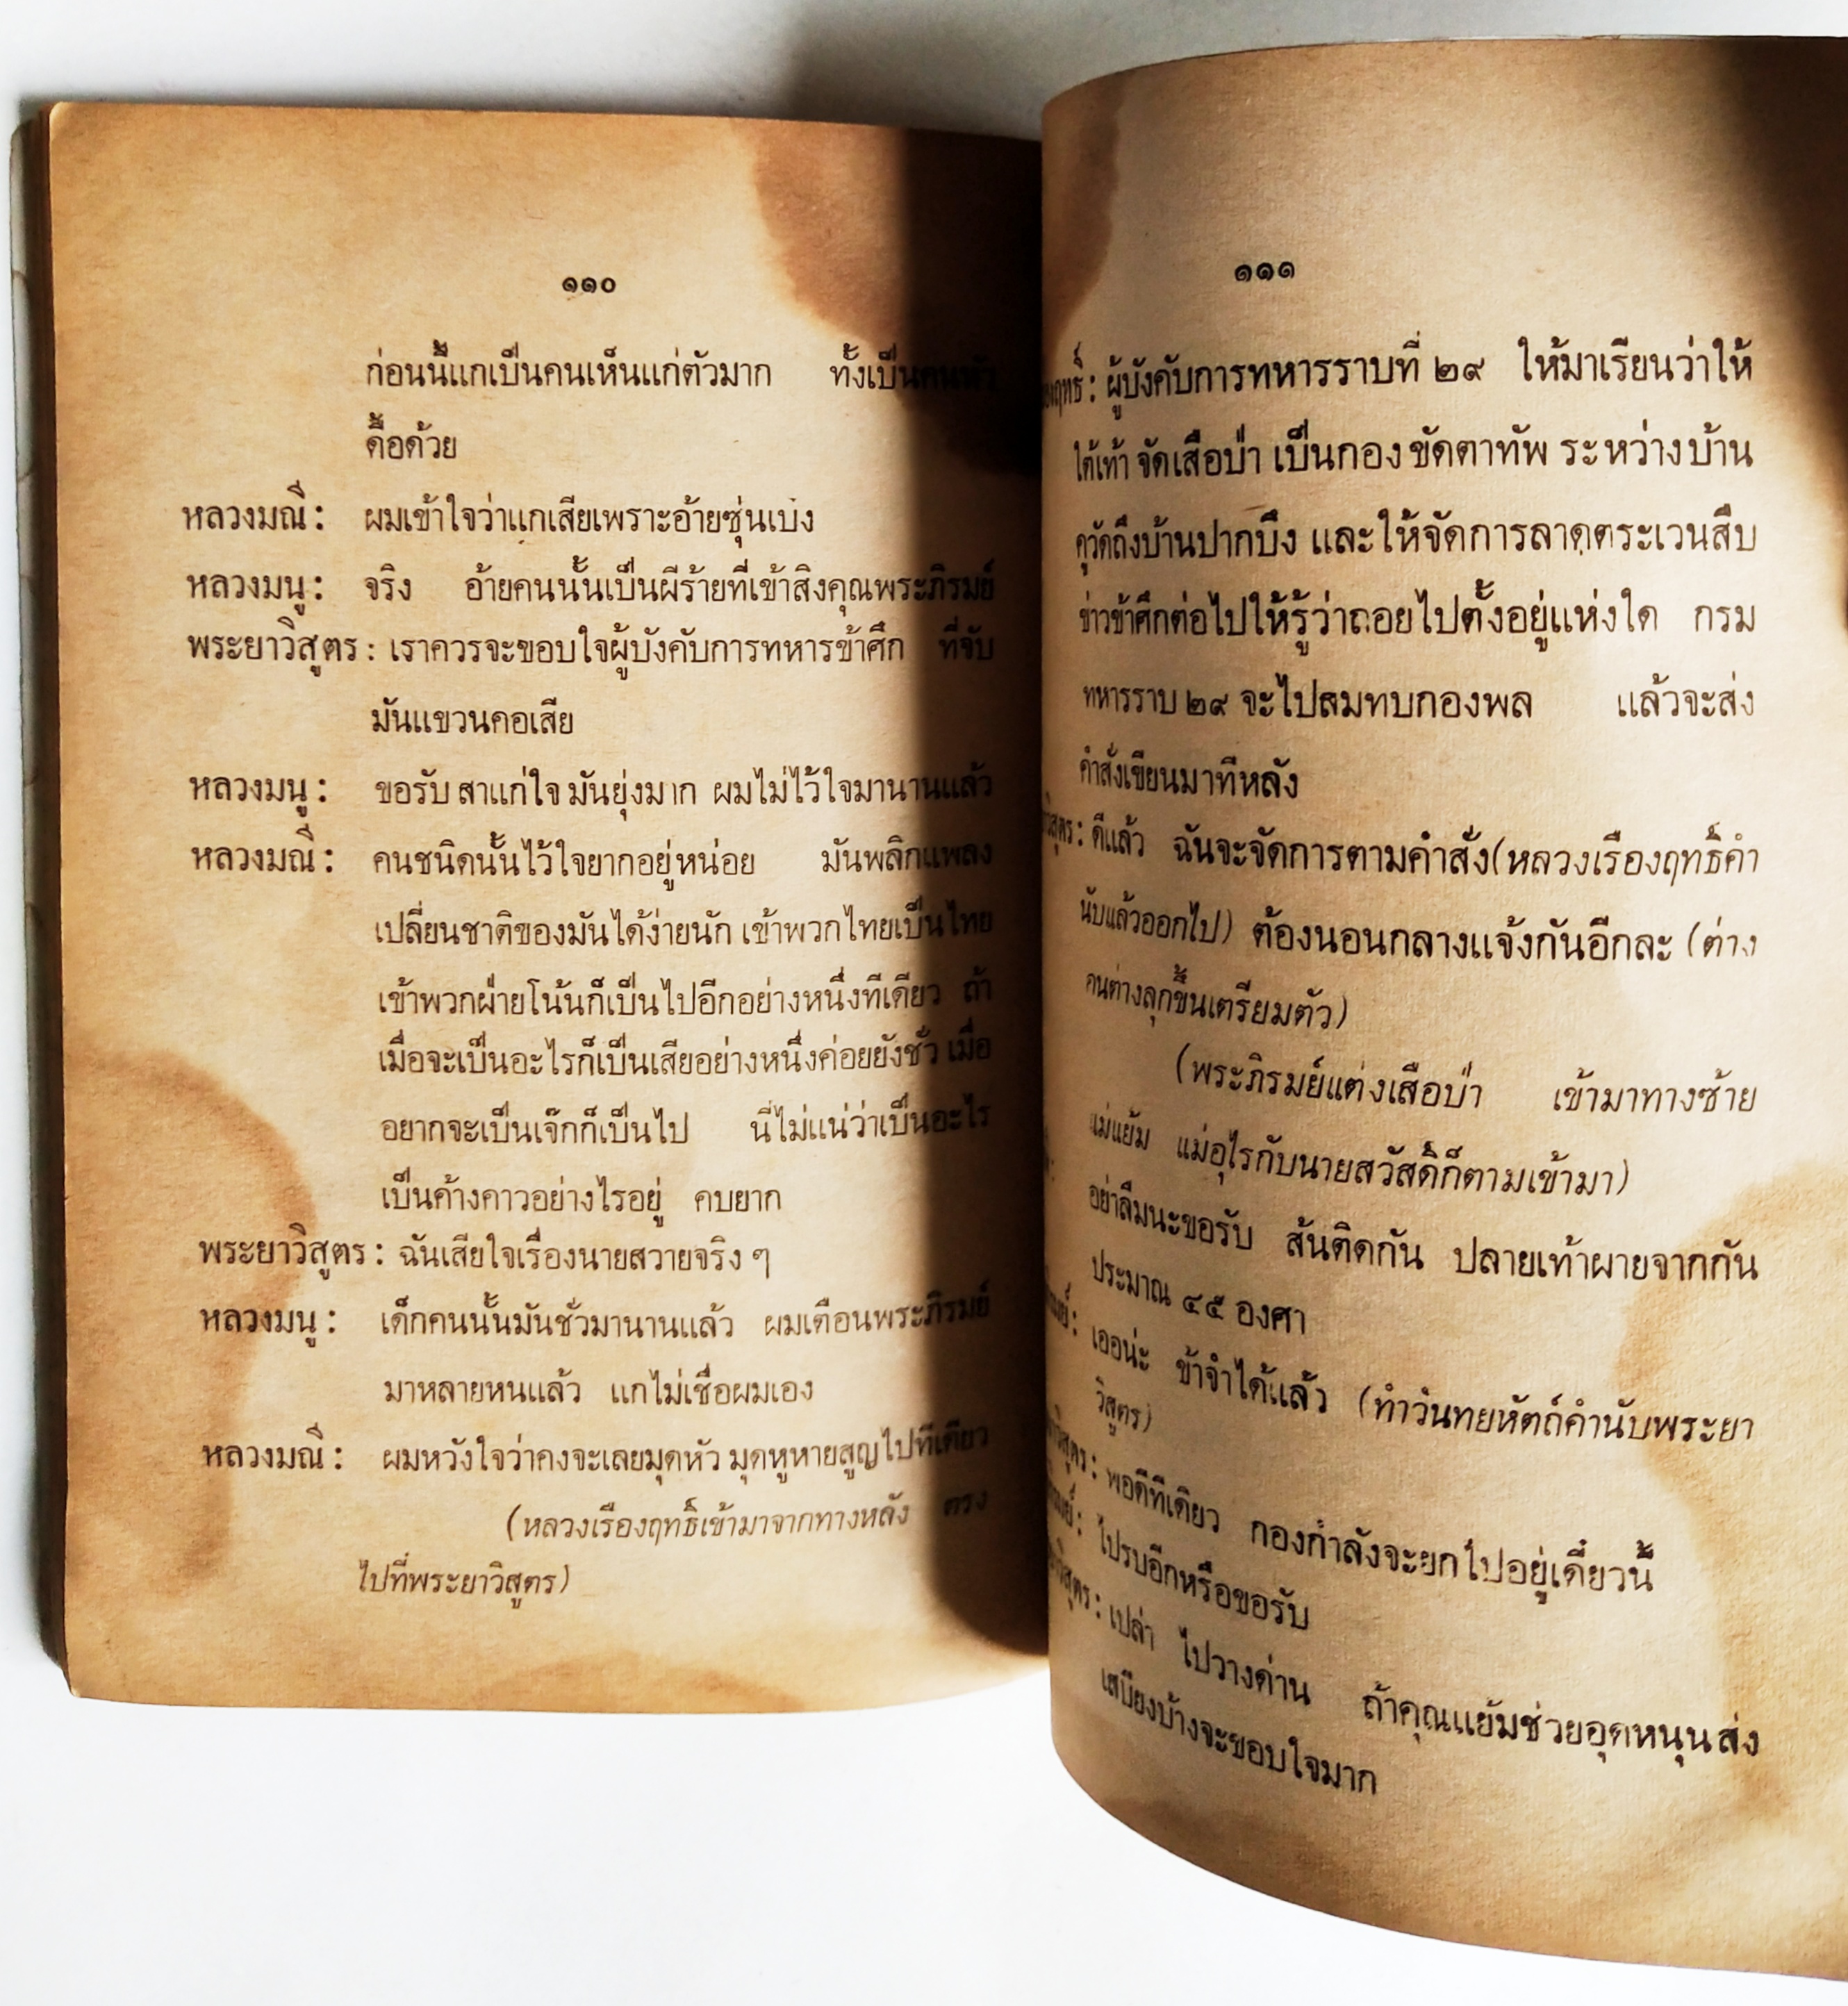 ๑๑๐
ก่อนนี้แกเป็นคนเห็นแก่ตัวมาก ทั้งเป็นคนหัว
ดื้อด้วย
หลวงมณี : ผมเข้าใจว่าแกเสียเพราะอ้ายซุ่นเบ่ง
หลวงมนู : จริง อ้ายคนนั้นเป็นผีร้ายที่เข้าสิงคุณพระภิรมย์
พระยาวิสูตร : เราควรจะขอบใจผู้บังคับการทหารข้าศึก ที่จับ
มันแขวนคอเสีย
หลวงมนู : ขอรับ สาแก่ใจ มันยุ่งมาก ผมไม่ไว้ใจมานานแล้ว
หลวงมณี : คนชนิดนั้นไว้ใจยากอยู่หน่อย มันพลิกแพลง
เปลี่ยนชาติของมันได้ง่ายนัก เข้าพวกไทยเป็นไทย
เข้าพวกฝ่ายโน้นก็เป็นไปอีกอย่างหนึ่งทีเดียว ถ้า
เมื่อจะเป็นอะไรก็เป็นเสียอย่างหนึ่งค่อยยังชั่ว เมื่อ
อยากจะเป็นเจ๊กก็เป็นไป นี่ไม่แน่ว่าเป็นอะไร
เป็นค้างคาวอย่างไรอยู่ คบยาก
พระยาวิสูตร : ฉันเสียใจเรื่องนายสวายจริง ๆ
หลวงมนู : เด็กคนนั้นมันชั่วมานานแล้ว ผมเตือนพระภิรมย์
มาหลายหนแล้ว แกไม่เชื่อผมเอง
หลวงมณี : ผมหวังใจว่าคงจะเลยมุดหัว มุดหูหายสูญไปทีเดียว
(หลวงเรืองฤทธิ์เข้ามาจากทางหลัง ตรง
ไปที่พระยาวิสูตร)
๑๑๑
ฤทธิ์ : ผู้บังคับการทหารราบที่ ๒๙ ให้มาเรียนว่าให้
ใต้เท้า จัดเสือป่า เป็นกองขัดตาทัพ ระหว่างบ้าน
คูวัดถึงบ้านปากบึง และให้จัดการลาดตระเวนสืบ
ข่าวข้าศึกต่อไปให้รู้ว่าถอยไปตั้งอยู่แห่งใด กรม
ทหารราบ ๒๙ จะไปสมทบกองพล แล้วจะส่ง
คำสั่งเขียนมาทีหลัง
วิสูตร : ดีแล้ว ฉันจะจัดการตามคำสั่ง (หลวงเรืองฤทธิ์คำ
นับแล้วออกไป) ต้องนอนกลางแจ้งกันอีกละ (ต่าง
คนต่างลุกขึ้นเตรียมตัว)
(พระภิรมย์แต่งเสือป่า เข้ามาทางซ้าย
แม่แย้ม แม่อุไรกับนายสวัสดิ์ก็ตามเข้ามา)
อย่าลืมนะขอรับ ส้นติดกัน ปลายเท้าผายจากกัน
ประมาณ ๔๕ องศา
รมย์ : เออน่ะ ข้าจำได้แล้ว (ทำวันทยหัตถ์คำนับพระยา
วิสูตร)
วิสูตร : พอดีทีเดียว กองกำลังจะยกไปอยู่เดี๋ยวนี้
รมย์ : ไปรบอีกหรือขอรับ
วิสูตร : เปล่า ไปวางด่าน ถ้าคุณแย้มช่วยอุดหนุนส่ง
เสบียงบ้างจะขอบใจมาก